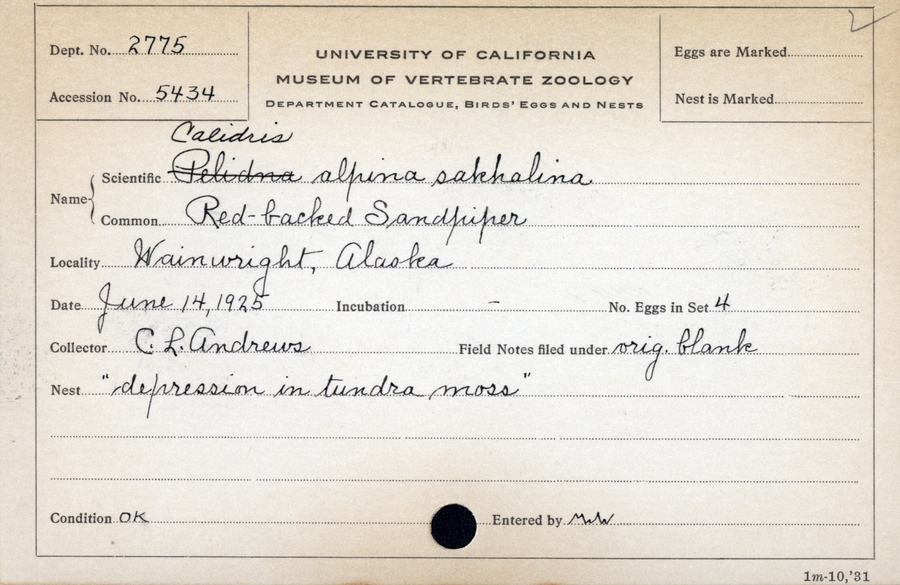 Dept. No. 2775
Accession No. 5434
UNIVERSITY OF CALIFORNIA
MUSEUM OF VERTEBRATE ZOOLOGY
DEPARTMENT CATALOGUE, BIRDS' EGGS AND NESTS
Eggs are Marked
Nest is Marked
Calidris
Name Scientific Pelidna alpina sakhalina
Common Red-backed Sandpiper
Locality Wainwright, Alaska
Date June 14, 1925 Incubation – No. Eggs in Set 4
Collector C. L. Andrews Field Notes filed under orig. blank
Nest "depression in tundra moss"
Condition OK Entered by
1m-10,'31